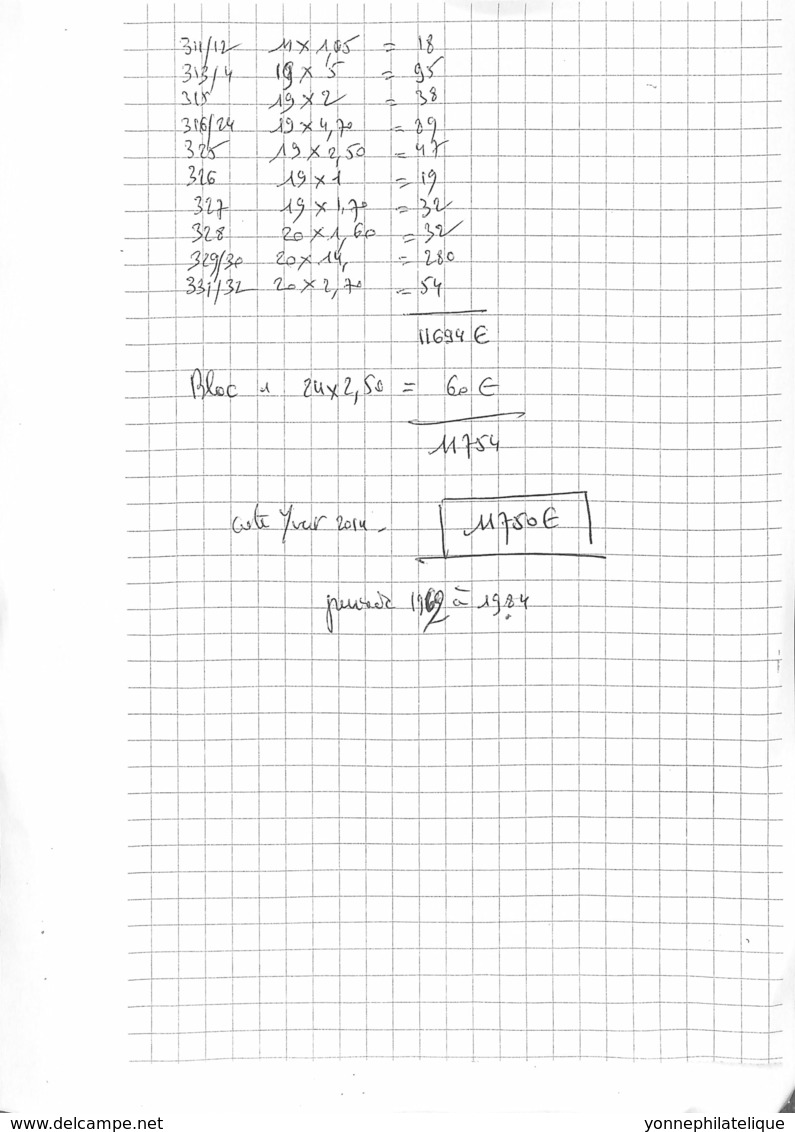 311/12 11 x 1,05 = 18
313/4 19 x 5 = 95
315 19 x 2 = 38
316/24 19 x 4,70 = 89
325 19 x 2,50 = 47
326 19 x 1 = 19
327 19 x 1,70 = 32
328 20 x 1,60 = 32
329/30 20 x 14, = 280
331/32 20 x 2,70 = 54
11694 €
Bloc 1 24 x 2,50 = 60 €
11754
cote Yver 2014 - 11750 €
periode 1962 à 1984
www.delcampe.net yonnephilatelique